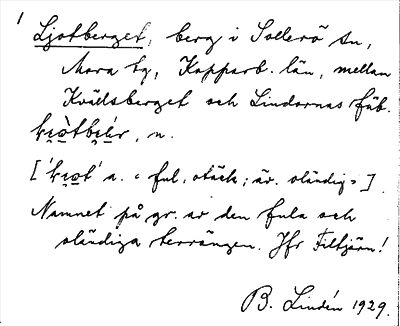 1
Ljotberget, berg i Sollerö sn,
Mora tg, Kopparb. län, mellan
Kvällsberget och Lindornas fäb.
n.
a. "ful, otäck; äv. oländig"].
Namnet på gr. av den fula och
oländiga terrängen. Jfr Filtjärn!
B. Lindén 1929.